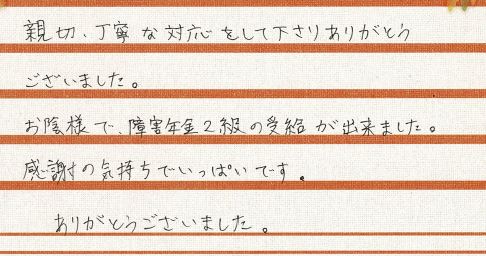 親切、丁寧な対応をして下さりありがとう
ございました。
お陰様で、障害年金2級の受給が出来ました。
感謝の気持ちでいっぱいです。
ありがとうございました。